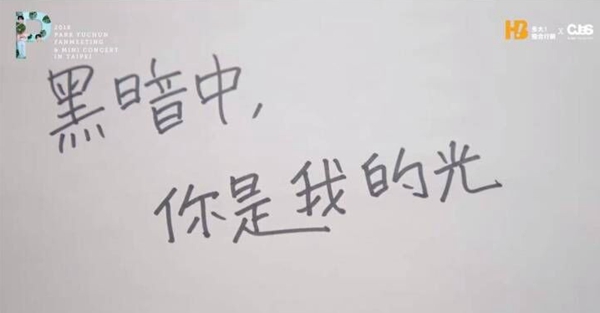 2018
PARK YUCHUN
FANMEETING
& MINI CONCERT
IN TAIPEI
HB
X
CJeS
黑暗中,
你是我的光